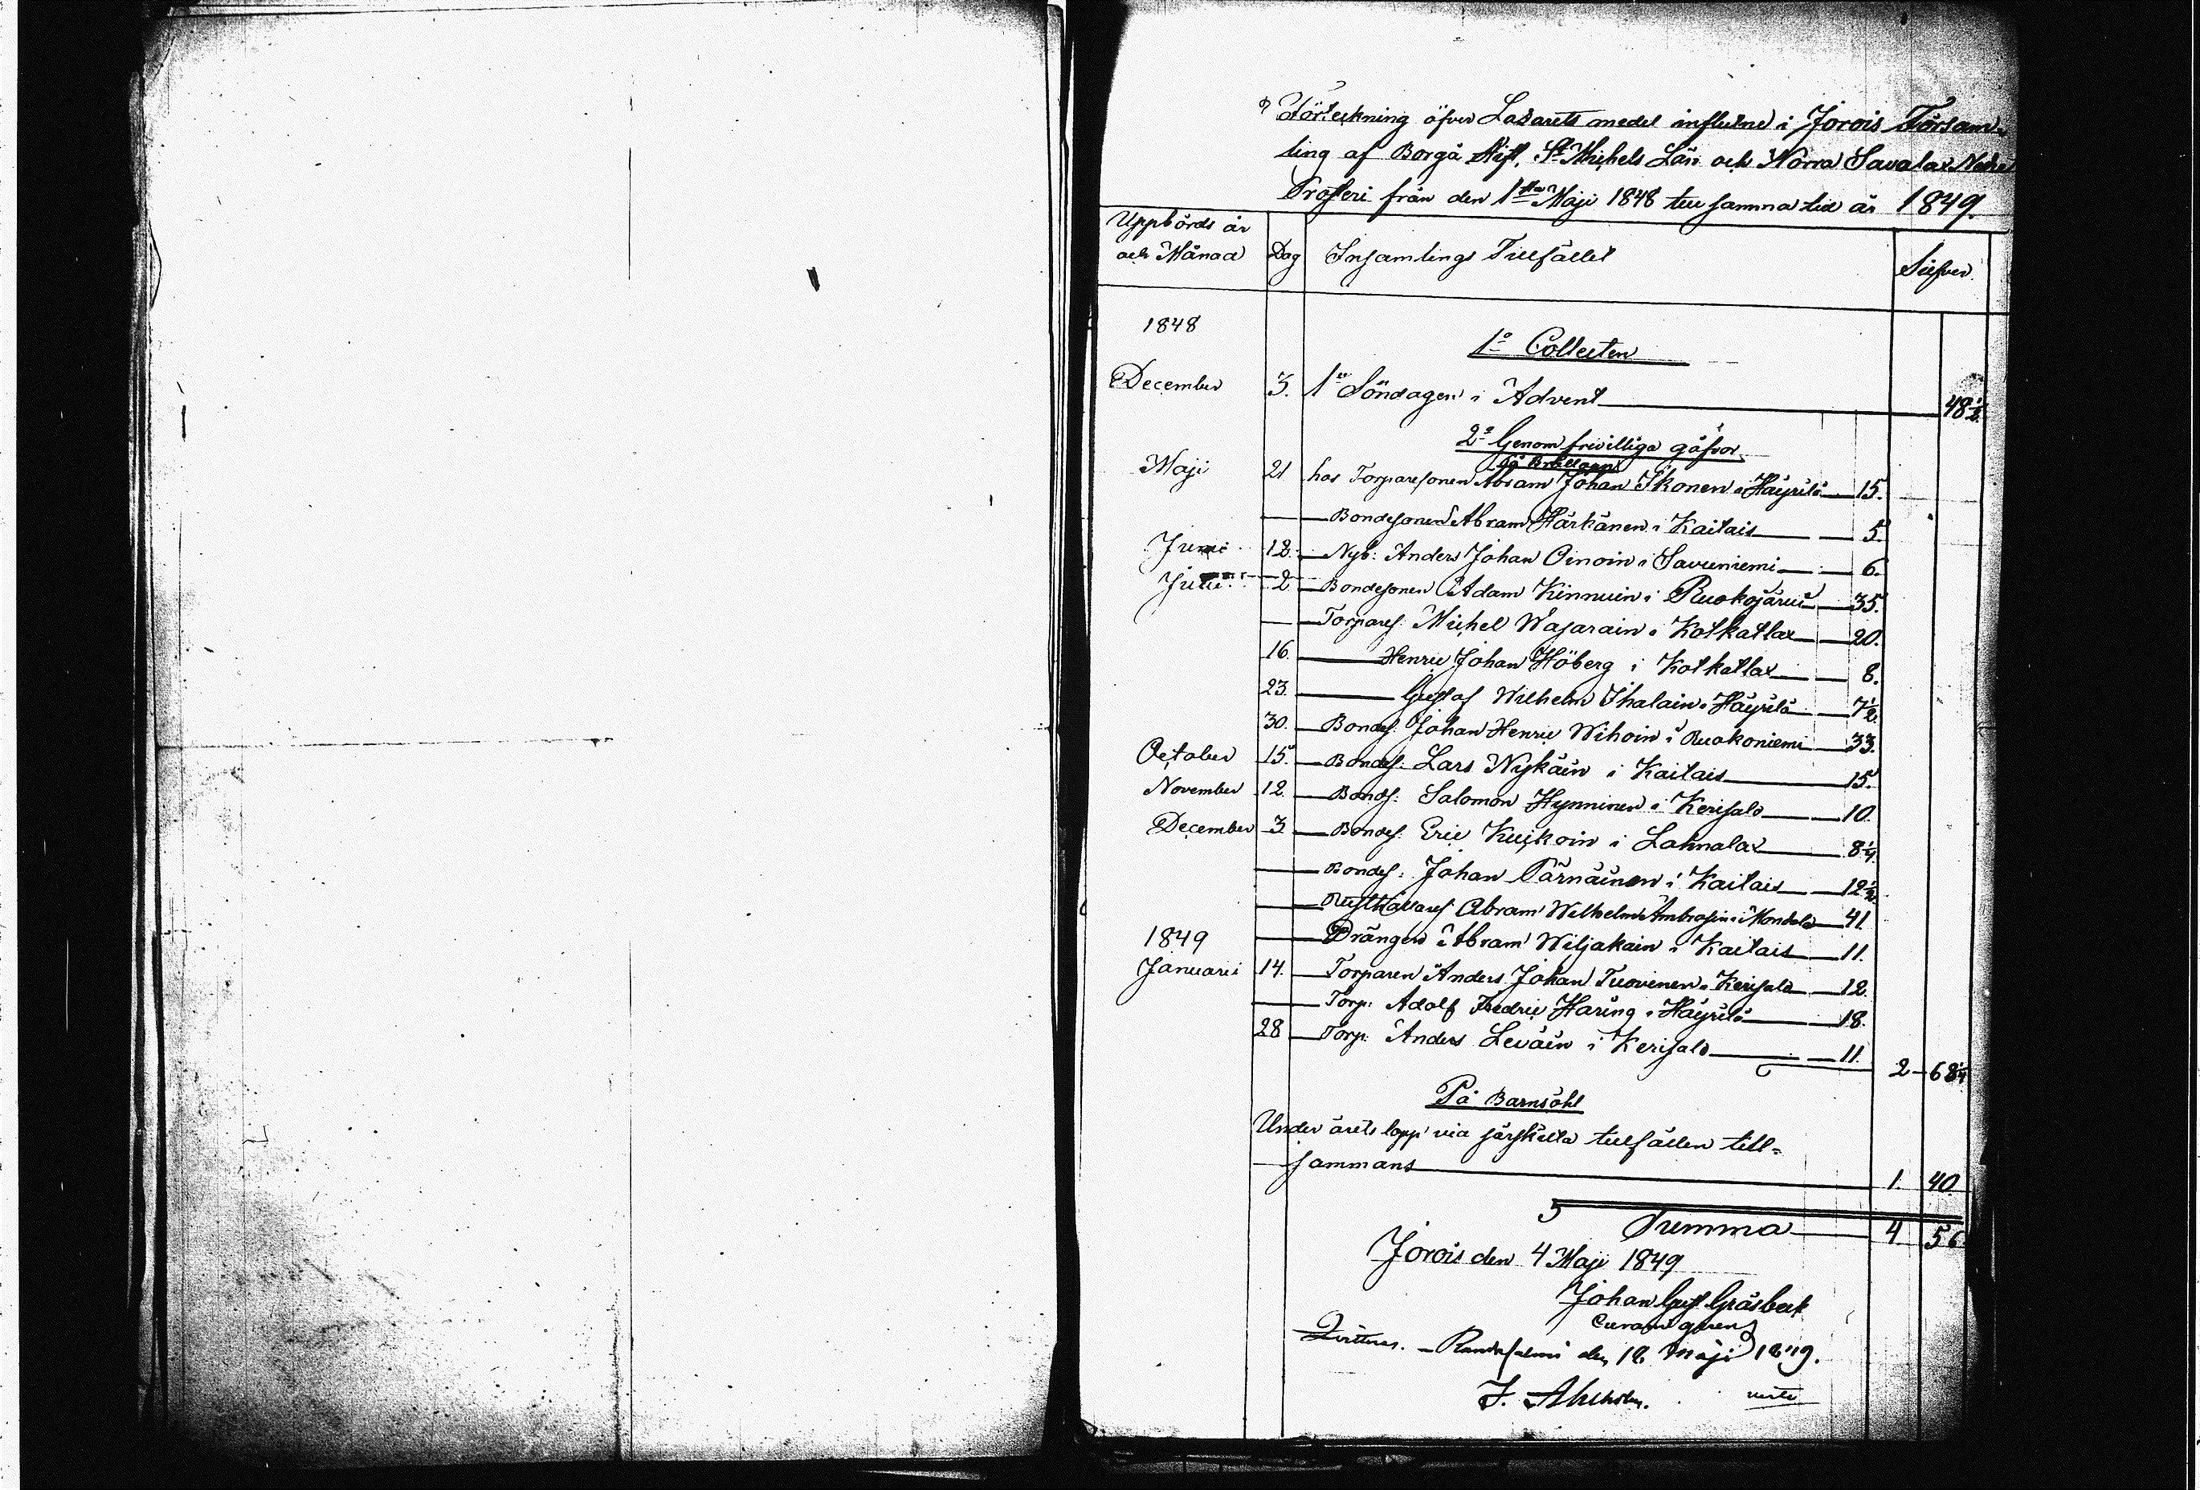 Förteckning öfver Lazaretts medel influtne i Jorois Församling
ling af Borgå Stift, St Michels Län och Norra Savolax Nedre
Prosteri från den 1sta Maji 1848 till samma tid år 1849.
Uppbörds år och Månad Dag Insamlings Tillfället Silfver
1848
1o Collecten
December 3. 1a Söndagen i Advent 48 1/2
2o Genom frivilliga gåfvor
På Bröllopp
Maji 21 hos Torparesonen Abram Johan Ikonen i Häyrilä 15.
Bondesonen Abram Härkänen i Kaitais 5.
Juni 12. Nyb: Anders Johan Oinoin i Savuniemi 6.
Julii 2 Bondesonen Adam Kinnuin i Ruokojärvi 35.
Torpares. Michel Wasarain i Kotkatlax 20.
16. Henric Johan Höberg i Kotkatlax 8.
23. Gustaf Wilhelm Ihalain i Häyrilä 7 1/2
30. Bondes. Johan Henric Wihoin i Ruokoniemi 33.
October 15. Bondes. Lars Nykäin i Kaitais 15.
November 12 Bonds: Salomon Hynninen i Kerisalo 10.
December 3 Bondes. Eric Kuikoin i Lahnalax 8 1/4
Bondes: Johan Pärnäinen i Kaitais 12 1/2
Rusthållares Abram Wilhelm Ambrosius i 41
1849 Drängen Abram Wiljakain i Kaitais 11.
Januarii 14. Torparen Anders Johan Tuovinen i Kerisalo 12.
Torp: Adolf Fredric Haring i Häyrilä 18.
28 Torp: Anders Leväin i Kerisalo 11. 2 68 1/4
På Barnsöhl
Under årets lopp via särskilta tillfällen till=
sammans 1. 40
Summa 4 56
Jorois den 4 Maji 1849
Johan Gust Gråsbeck
Curam gerens
Qvitteras. Randasalmi den 18 Maji 1849.
J. Ahlholm.